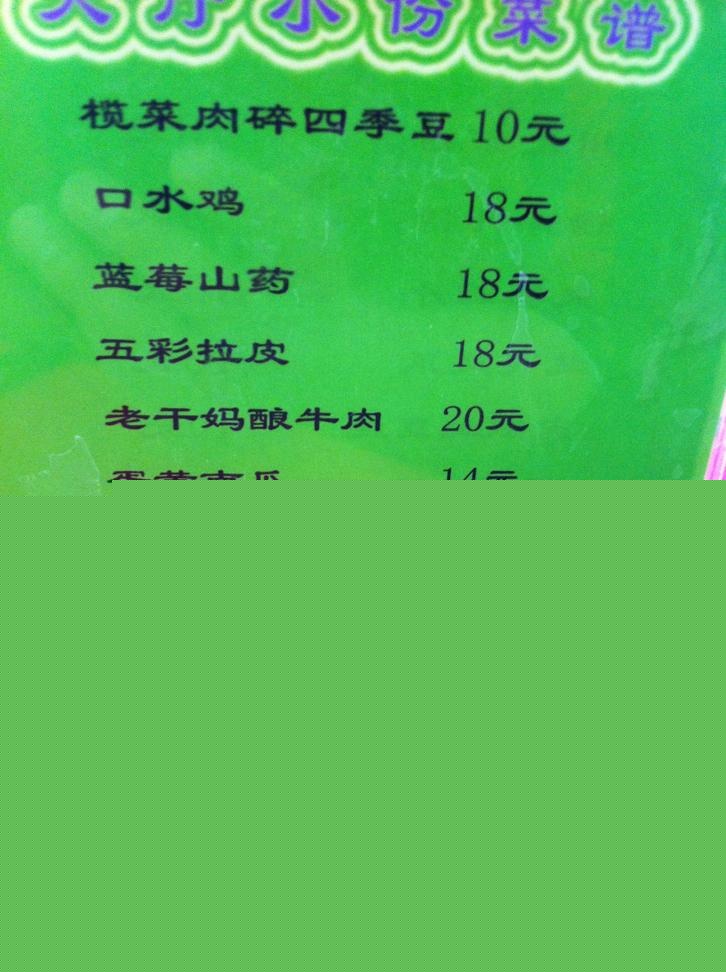 大厅小份菜谱
榄菜肉碎四季豆 10元
口水鸡 18元
蓝莓山药 18元
五彩拉皮 18元
老干妈酿牛肉 20元
蛋黄南瓜 14元